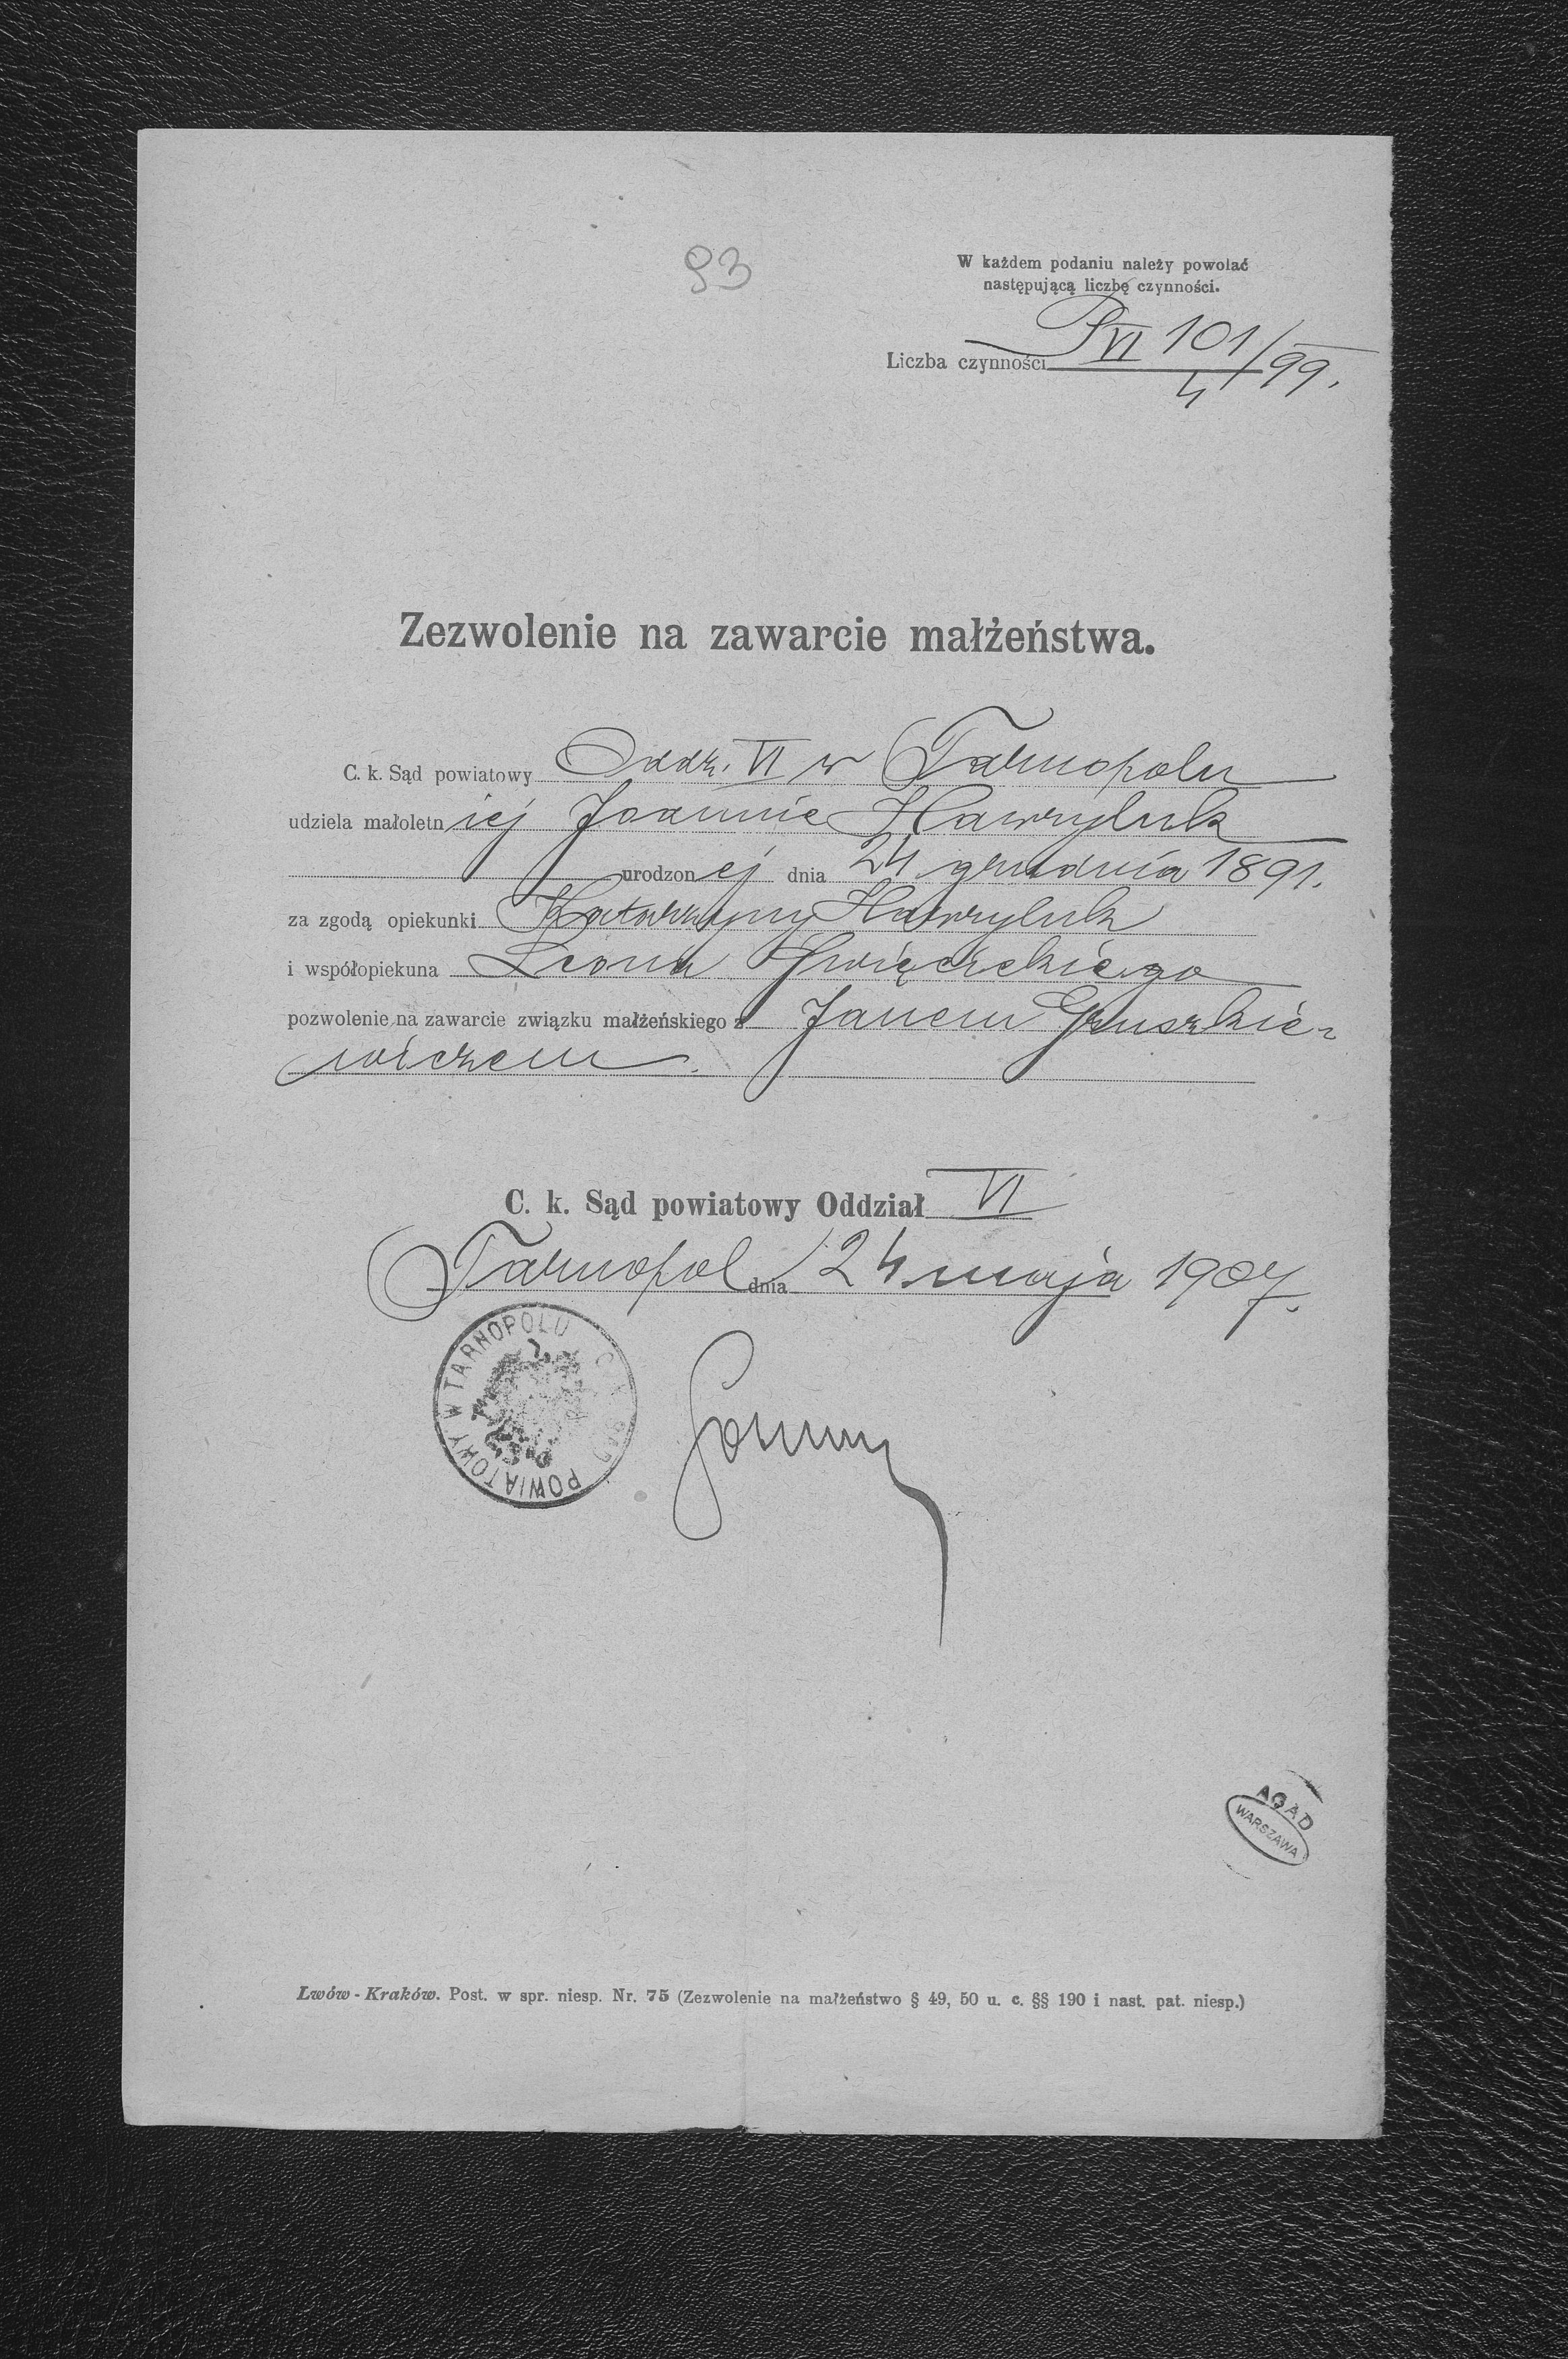 93
W każdem podaniu należy powołać
następującą liczbę czynności.
Liczba czynności P VI 101/99.
4
Zezwolenie na zawarcie małżeństwa.
C. k. Sąd powiatowy Oddz. VI w Tarnopolu
udziela małoletniej Joannie Hawryluk
urodzonej dnia 24 grudnia 1891.
za zgodą opiekunki Katarzyny Hawryluk
i współopiekuna Leona Święcickiego
pozwolenie na zawarcie związku małżeńskiego z Janem Gruszkie-
wiczem.
C. k. Sąd powiatowy Oddział VI
Tarnopol dnia 24 maja 1907.
C. K. SĄD POWIATOWY W TARNOPOLU
AGAD
WARSZAWA
Lwów - Kraków. Post. w spr. niesp. Nr. 75 (Zezwolenie na małżeństwo § 49, 50 u. c. §§ 190 i nast. pat. niesp.)